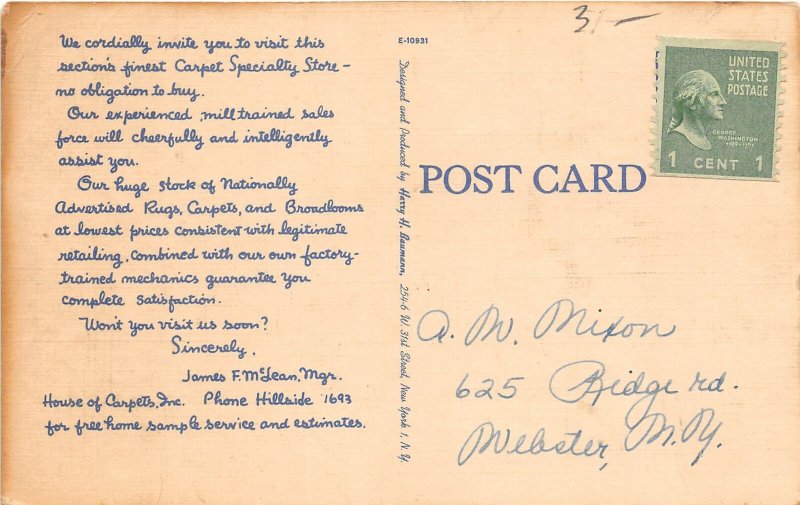 We cordially invite you to visit this
section's finest Carpet Specialty Store –
no obligation to buy.
Our experienced mill trained sales
force will cheerfully and intelligently
assist you.
Our huge stock of Nationally
Advertised Rugs, Carpets, and Broadlooms
at lowest prices consistent with legitimate
retailing, combined with our own factory-
trained mechanics guarantee you
complete satisfaction.
Won't you visit us soon?
Sincerely,
James F. McLean, Mgr.
House of Carpets, Inc. Phone Hillside 1693
for free home sample service and estimates.
E-10931
Designed and Produced by Harry H. Baumann, 254-6 W. 31st Street, New York 1, N.Y.
3. –
UNITED
STATES
POSTAGE
GEORGE
WASHINGTON
1789-1797
1 CENT 1
POST CARD
A. W. Nixon
625 Ridge rd.
Webster, N.Y.